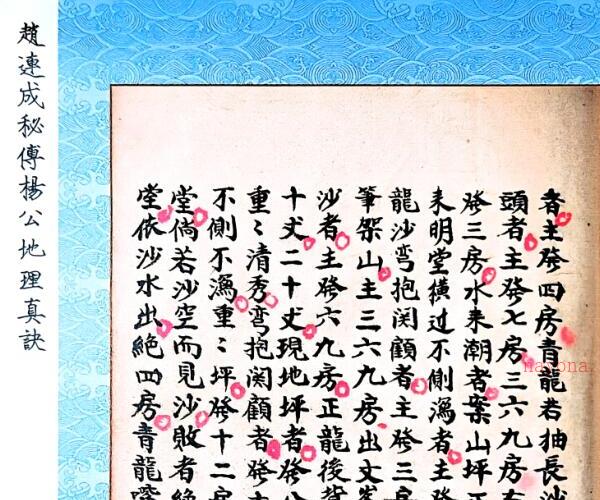 趙連成秘傳楊公地理真訣
者主發四房青龍若抽長沙
頭者主發七房三六九房
發三房水来潮者案山坪正
来明堂横过不側㵼者主發
龍沙弯抱闵顧者主發三房
筆架山主三六九房出文
沙者主發六九房正龍後
十丈二十丈現地坪者發
重〻清秀弯抱闵顧者發
不側不㵼重〻坪發十二房
堂倘若沙空而見沙敗者絶
堂依沙水出絶四房青龍
nayona.